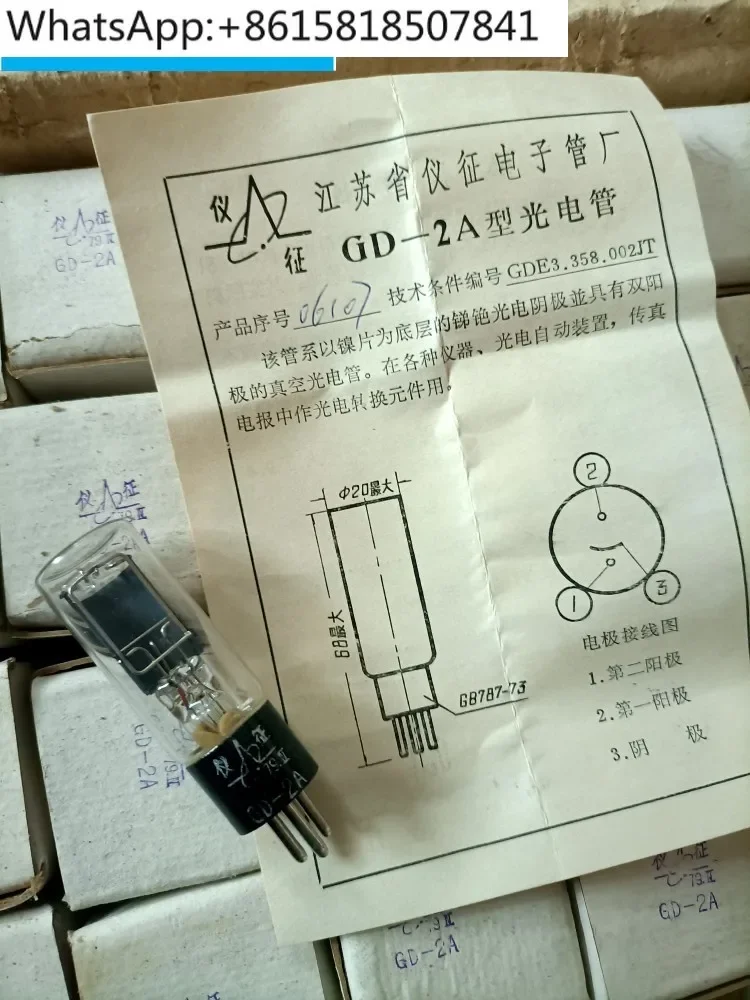 WhatsApp:+8615818507841
江苏省仪征电子管厂
仪
征
GD-2A型光电管
产品序号 06107 技术条件编号 GDE3.358.002JT
该管系以镍片为底层的锑铯光电阴极並具有双阳
极的真空光电管。在各种仪器、光电自动装置，传真
电报中作光电转换元件用。
Φ20最大
68最大
GB787-73
2
1
3
电极接线图
1.第二阳极
2.第一阳极
3.阴 极
仪 征
79.II
GD-2A
仪 征
79.II
-2A
仪 征
79.II
GD-2A
79.II
GD-2A
79.II
GD-2A
仪 征
79.II
GD-2A